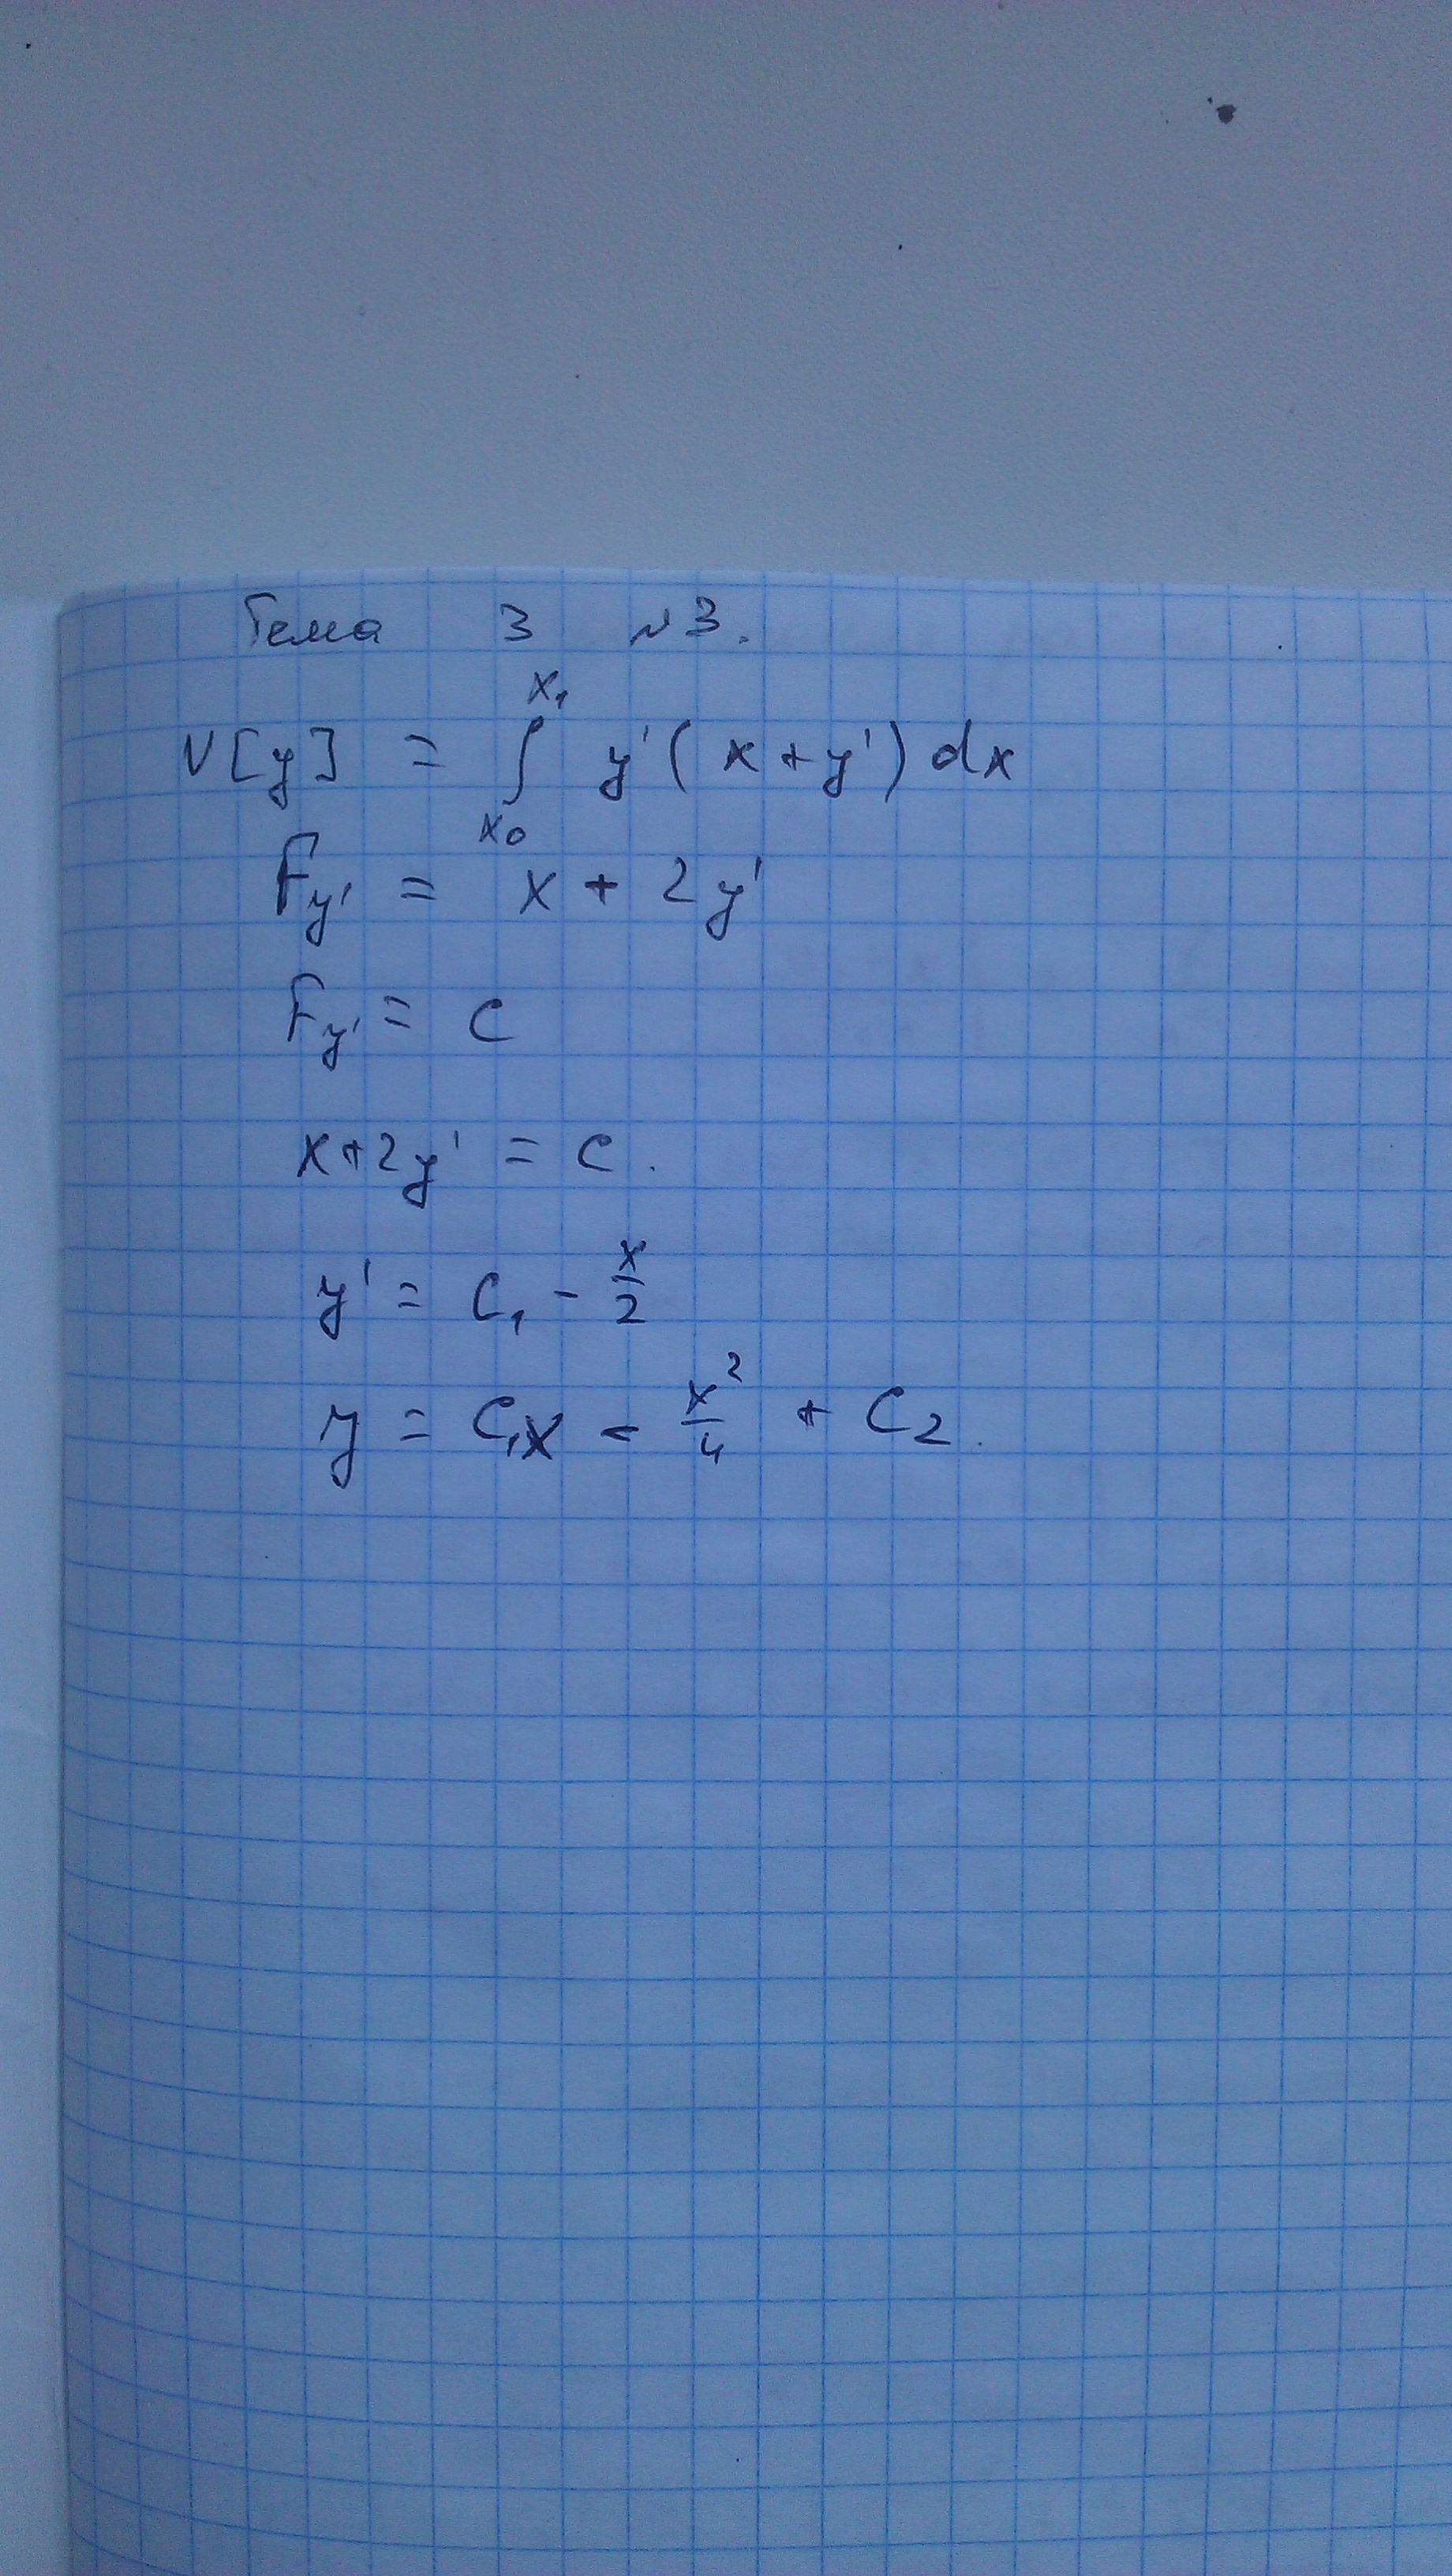 Тема 3 №3.
V[y] = ∫_{x₀}^{x₁} y'(x+y')dx
F_{y'} = x + 2y'
F_{y'} = C
x+2y' = C.
y' = C₁ - x/2
y = C₁x - x²/4 + C₂.